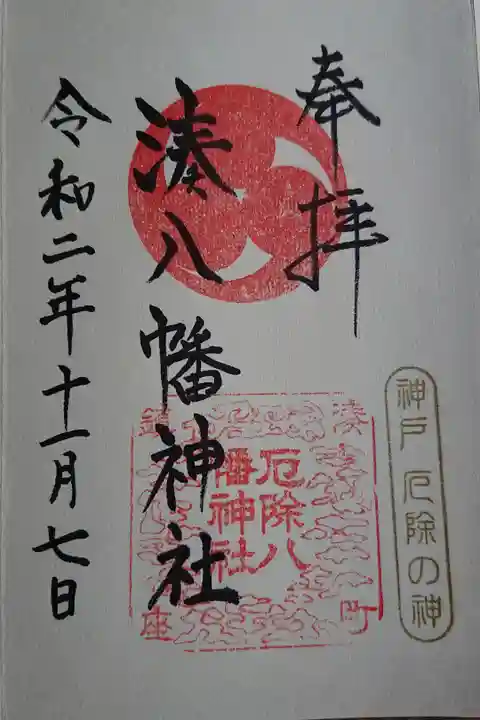 奉拝
神戸 厄除の神
湊八幡神社
湊
町
鎮
座
厄除八
幡神社
令和二年十一月七日